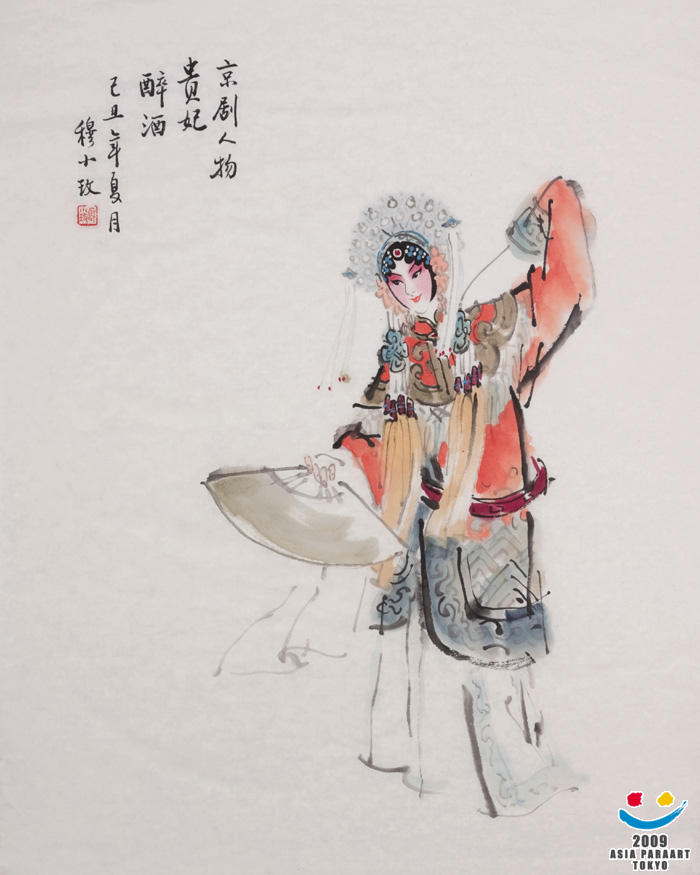 京剧人物
貴妃
醉酒
己丑年夏月
穆小玫
2009
ASIA PARAART
TOKYO